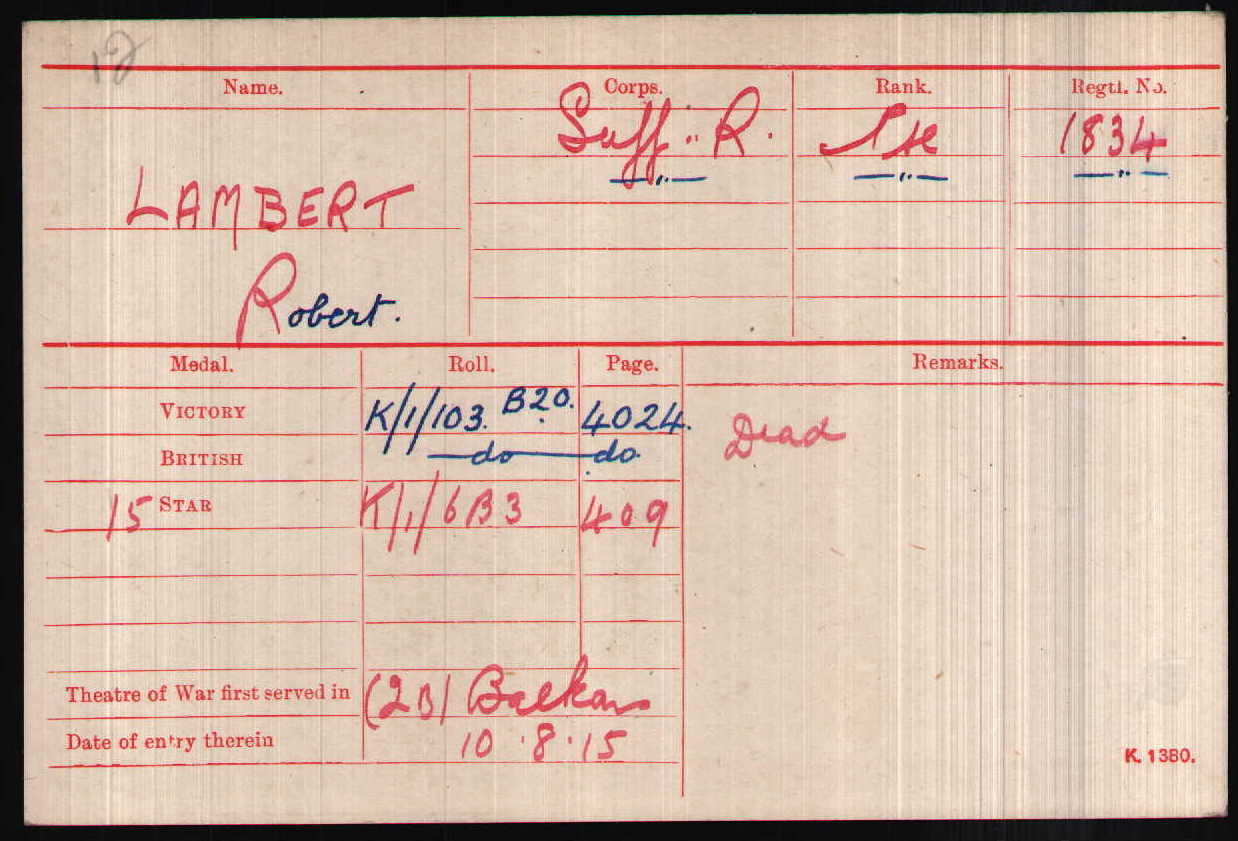 12
Name. Corps. Rank. Regtl. No.
Suff: R. Pte 1834
—"— —"— —"—
LAMBERT
Robert.
Medal. Roll. Page. Remarks.
VICTORY K/1/103. B20. 4024.
BRITISH —do— do.
Dead
15 STAR K/1/6B3 409
Theatre of War first served in (2B) Balkans
Date of entry therein 10.8.15
K. 1380.